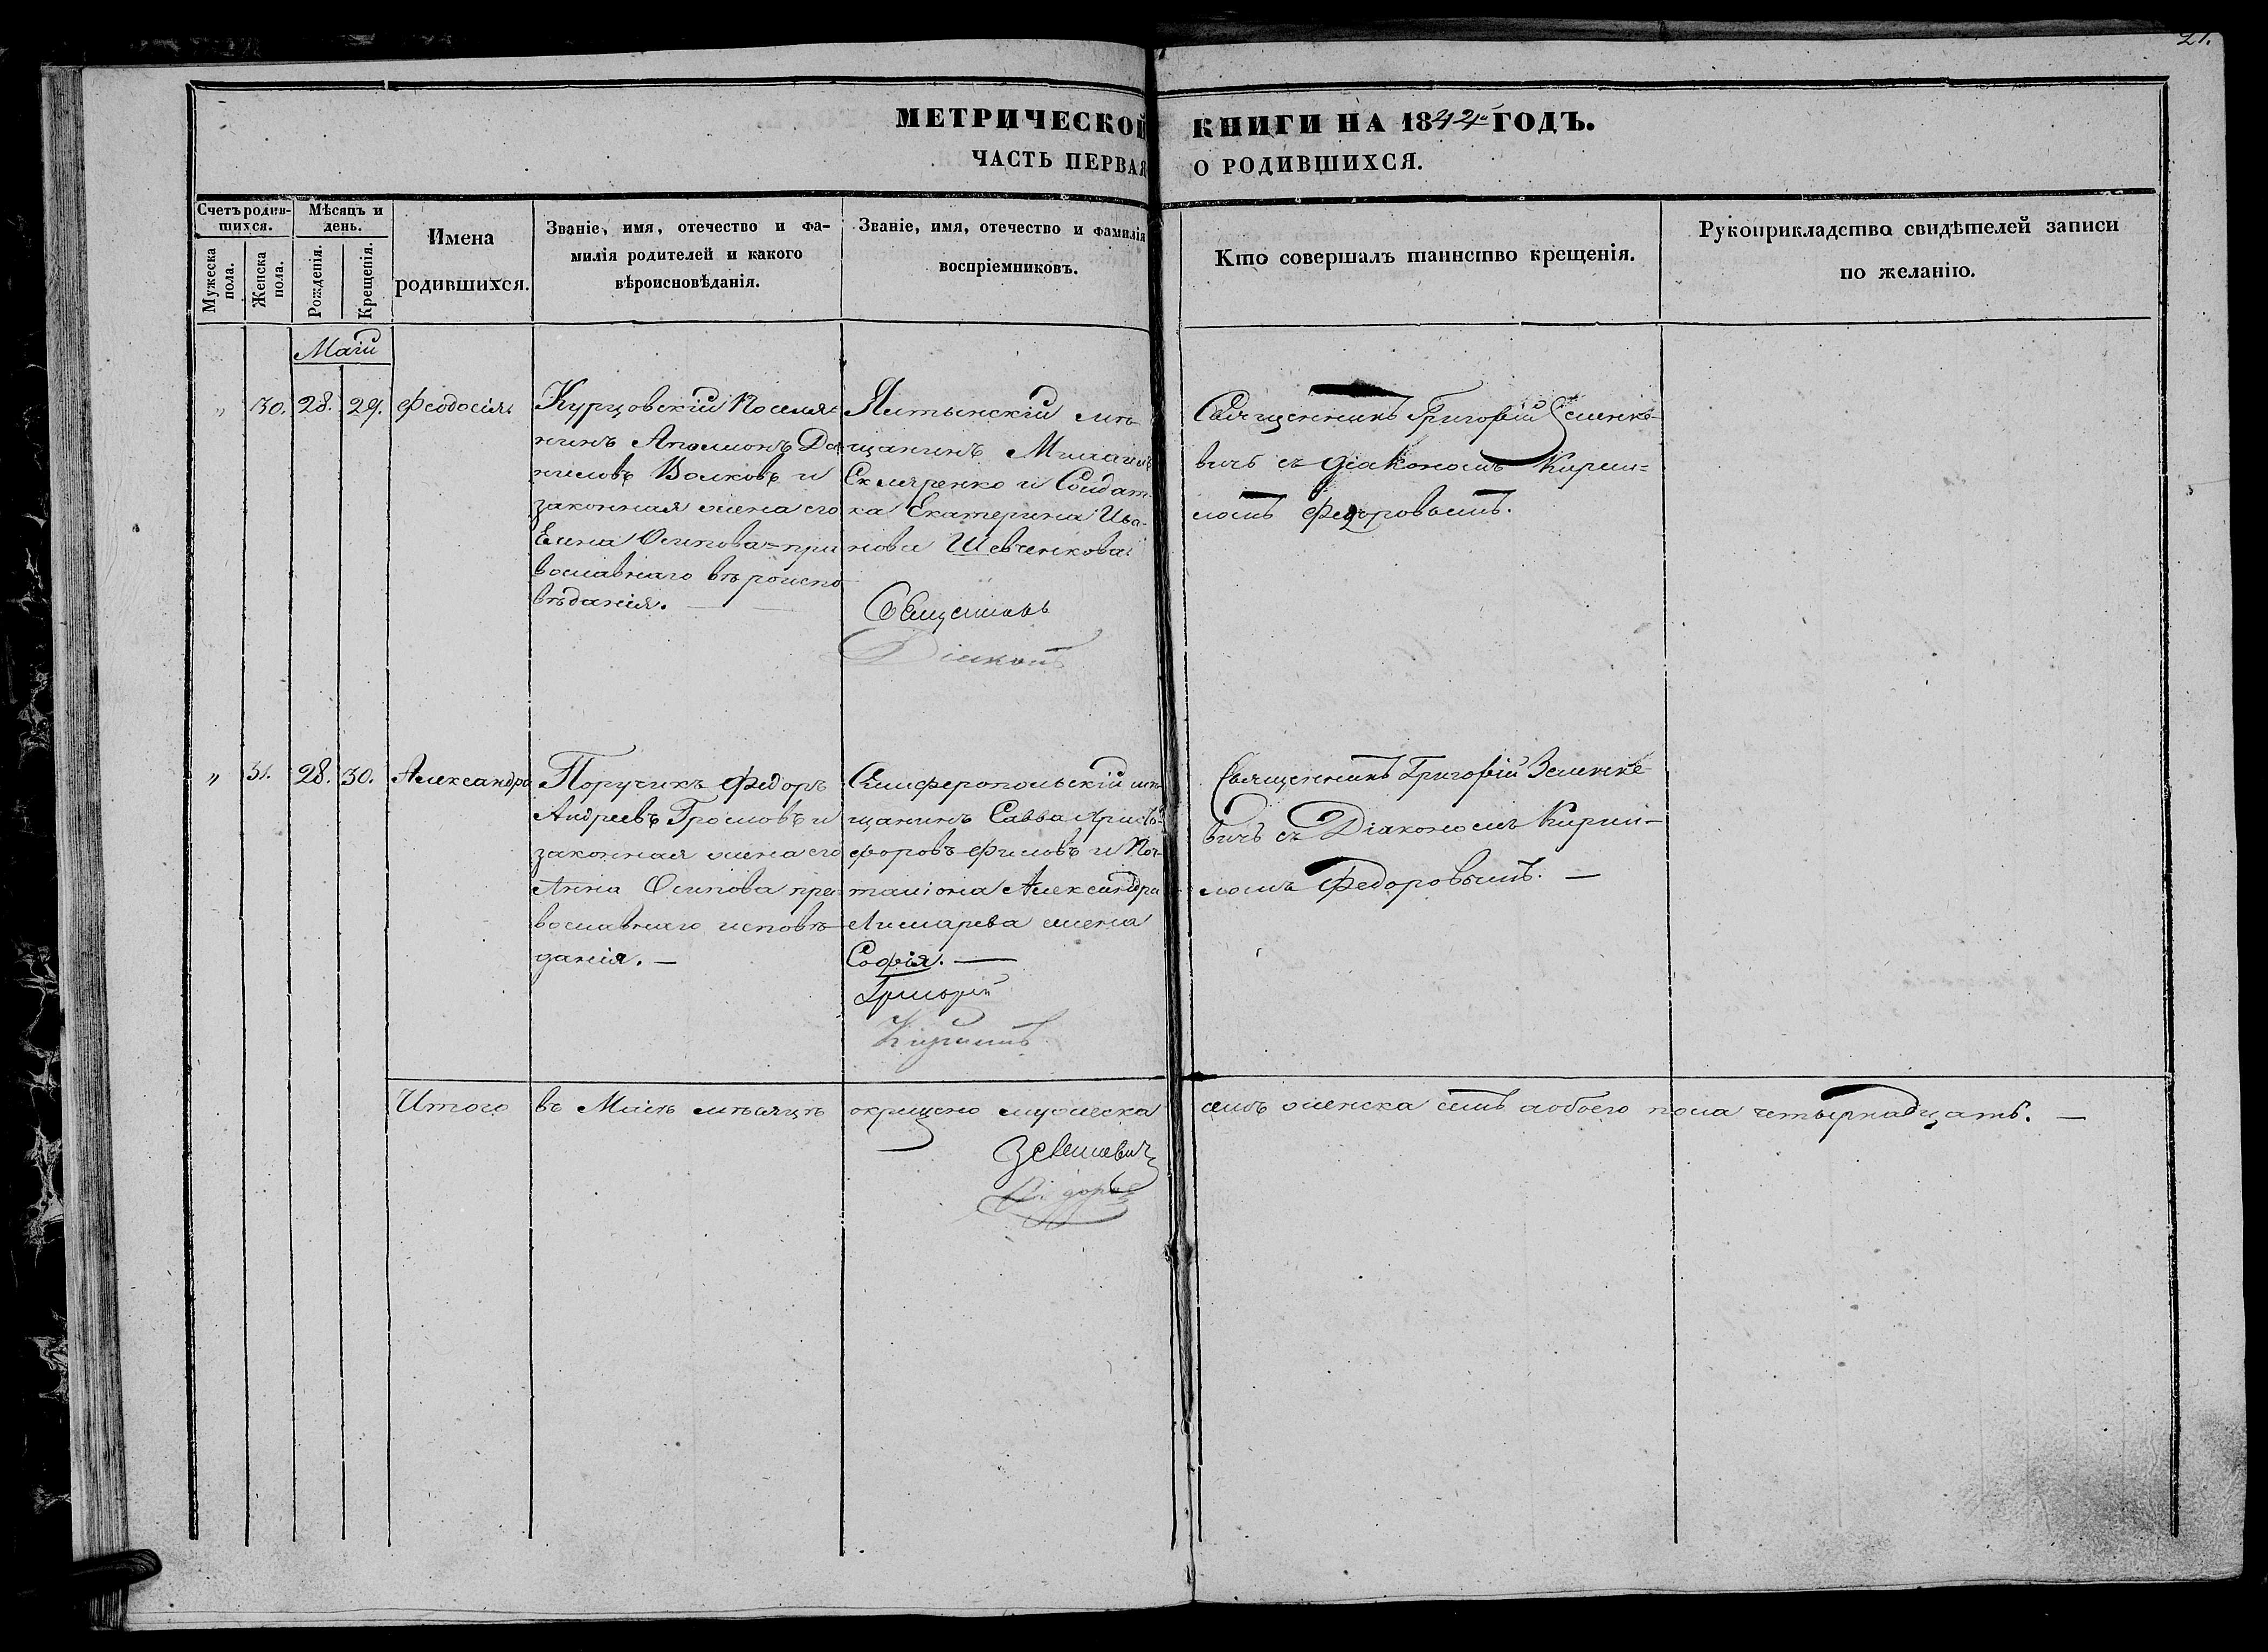 21.
МЕТРИЧЕСКОЙ КНИГИ НА 1842 ГОДЪ.
ЧАСТЬ ПЕРВАЯ О РОДИВШИХСЯ.
Счетъ родив-
шихся.
Мужеска
пола.
Женска
пола.
Мѣсяцъ и
день.
Рожденія.
Крещенія.
Имена
родившихся.
Званіе, имя, отечество и фа-
милія родителей и какого
вѣроисновѣданія.
Званіе, имя, отечество и фамилія
воспріемниковъ.
Кто совершалъ таинство крещенія.
Рукоприкладство свидѣтелей записи
по желанію.
Маій
„ 30. 28. 29. Феодосія
Курцовскій Поселя-
нинъ Да-
ниловъ Волковъ и
законная жена его
Елена Осипова пра
вославнаго вѣроиспо
вѣданія. —
Ялтынскій мѣ-
щанинъ Михаилъ
Скляренко и Солдат-
ка Екатерина Ива-
нова Шевченкова
Священникъ
Діаконъ
Священникъ Григорій Зеленке-
вичъ съ Діакономъ Кирил-
ломъ Федоровымъ.
„ 31. 28. 30. Александра
Поручикъ Федоръ
Андреевъ Громовъ и
законная жена его
Анна Осипова пра
вославнаго исповѣ-
данія. —
Симферопольскій мѣ-
щанинъ Савва Христо-
форовъ Филовъ и
Александра
жена
Софія. —
Григорій
Кириллъ
Священникъ Григорій Зеленке-
вичъ съ Діакономъ Кирил-
ломъ Федоровымъ. —
Итого въ Маіѣ мѣсяцѣ окрещено мужеска семь женска семь а обоего пола четырнадцать. —
Зеленкевичъ